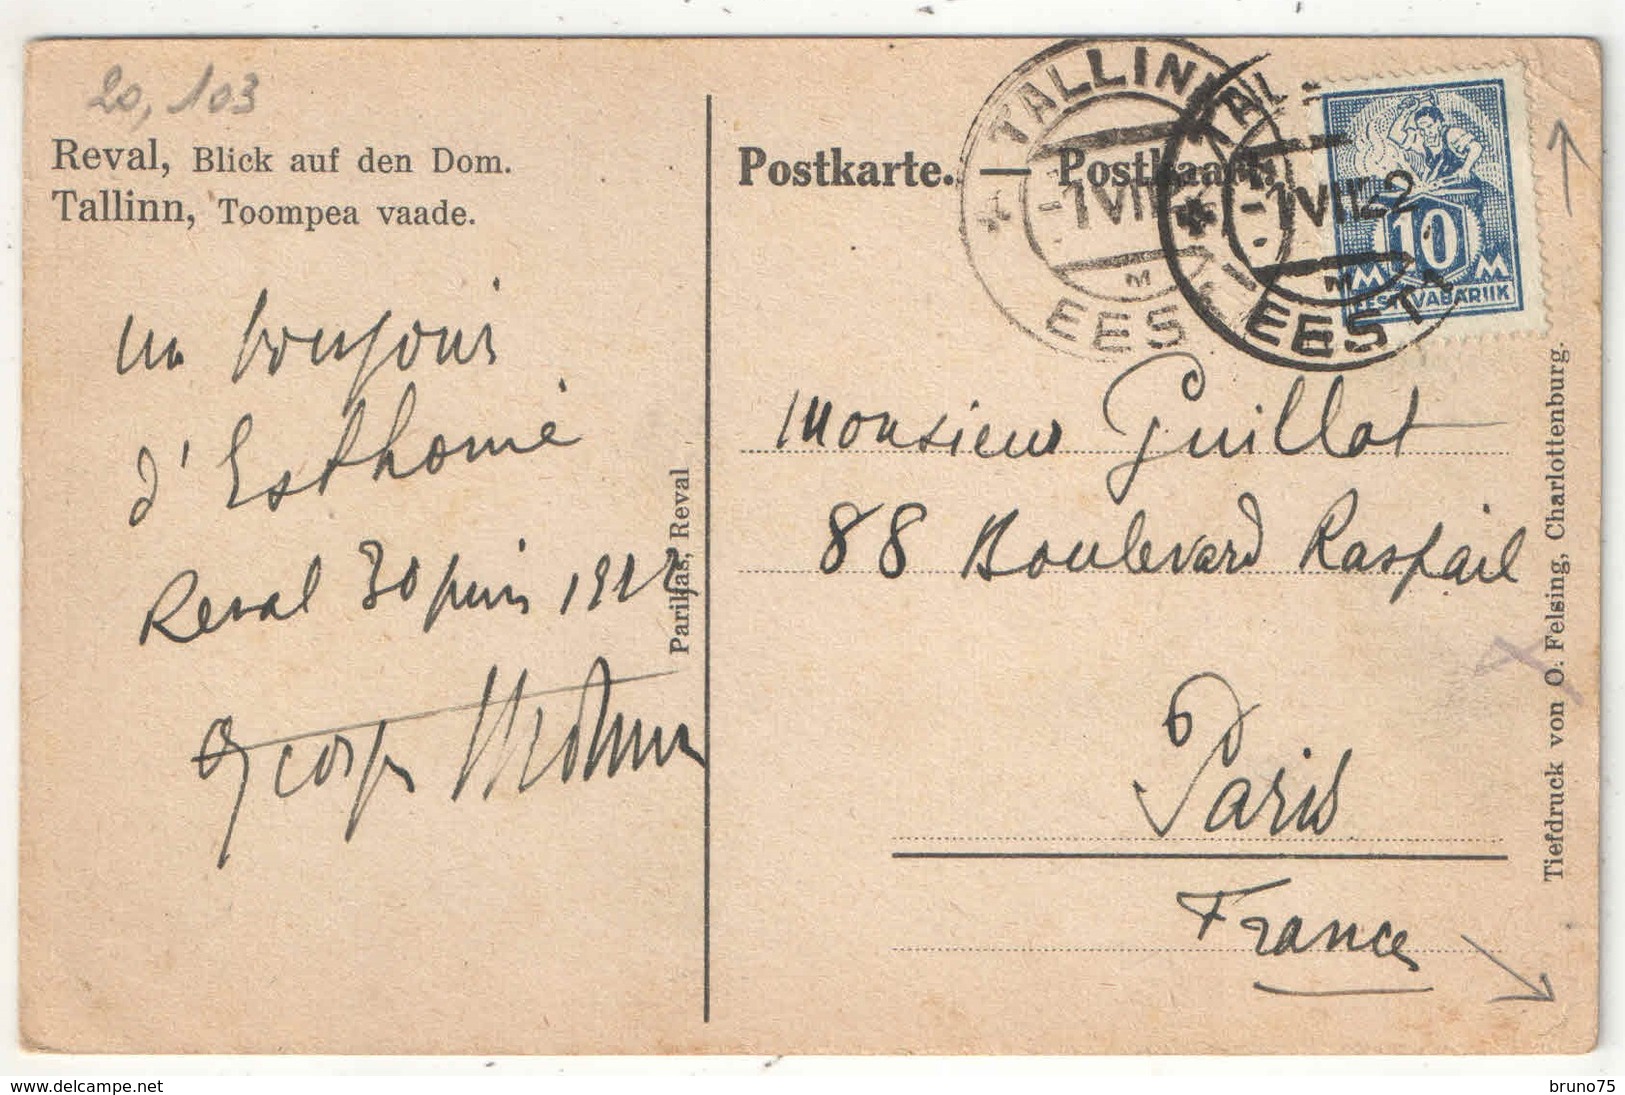 20,103
Reval, Blick auf den Dom.
Tallinn, Toompea vaade.
un bonjour
d'Esthonie
Reval 30 juin 1922
Georges
Parikas, Reval
Postkarte. — Postkaart
TALLINN
1 VII
M
EESTI
TALLINN
1 VII 22
M
EESTI
10
M M
EESTI VABARIIK
Monsieur Guillot
88 Boulevard Raspail
Paris
France
Tiefdruck von O. Felsing, Charlottenburg.
www.delcampe.net
bruno75